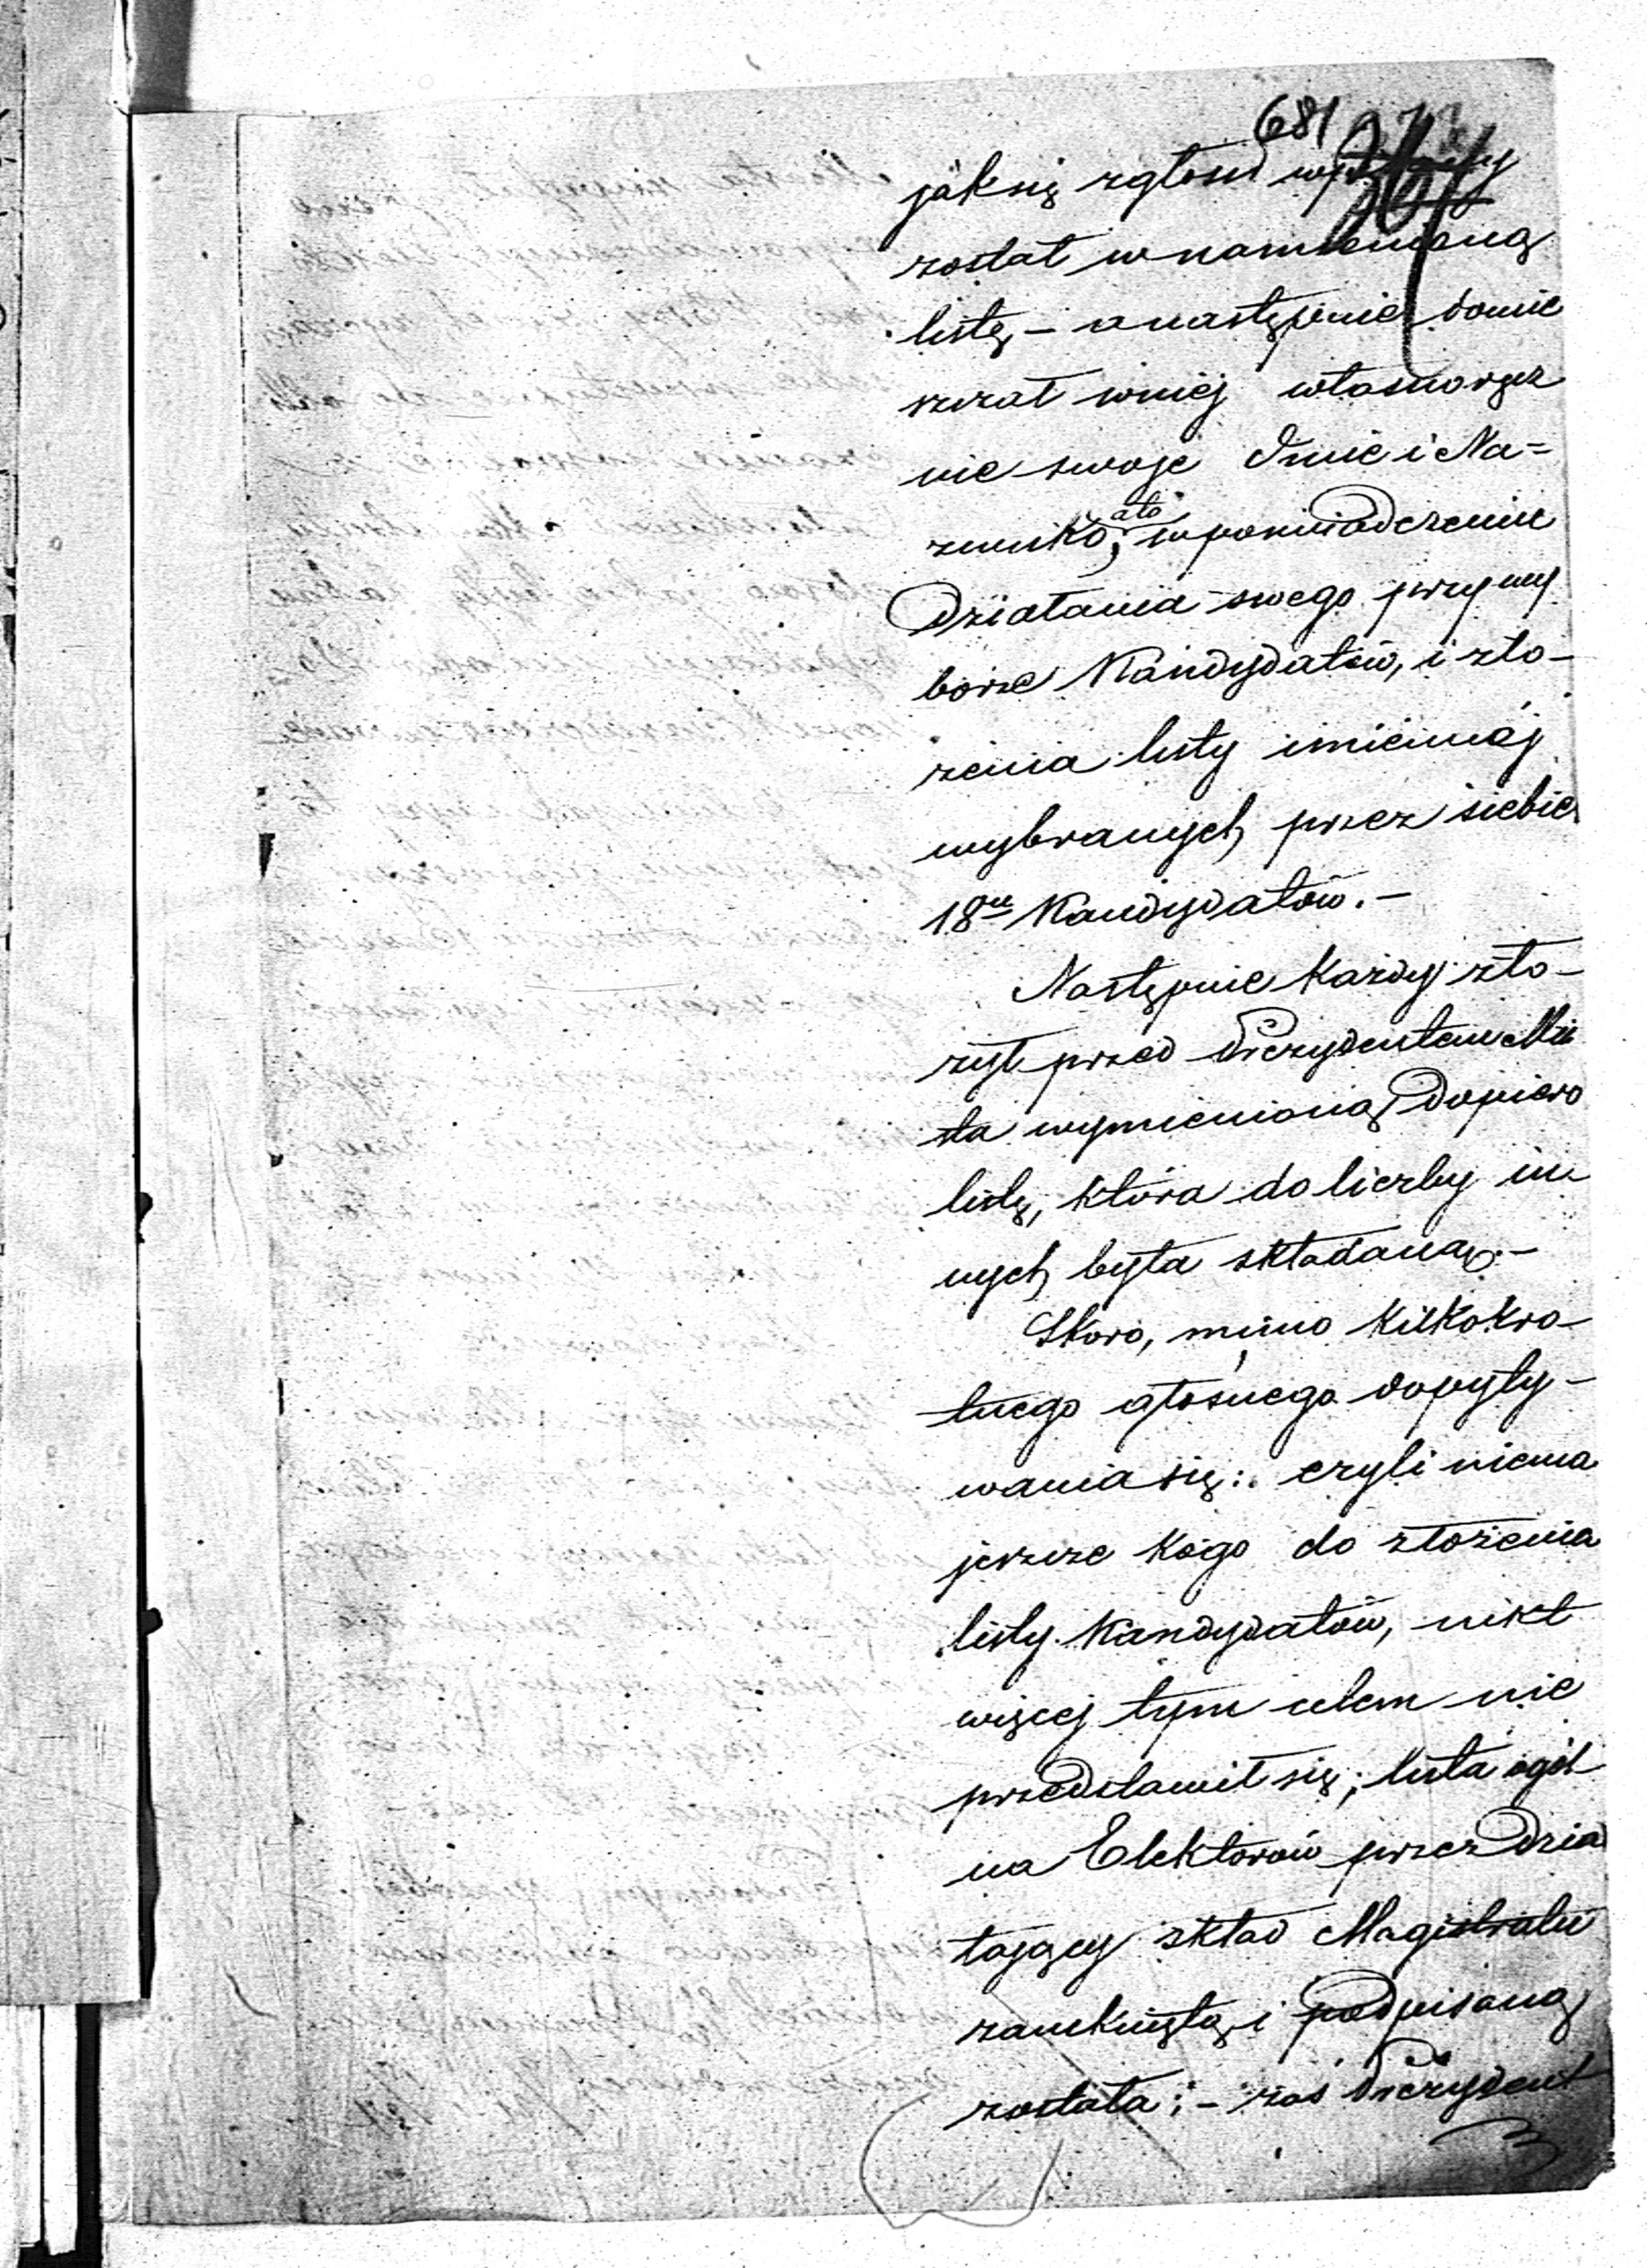 681
jak się zgłosił
został w namienioną
listę, – a następnie domie
szczał w niéj własnoręcz
nie swoje Imie i Na=
zwisko, ato w poswiadczenie
Działania swego przy wy
borze Kandydatów, i zło-
żenia listy imiennéj
wybranych przez siebie
18tu Kandydatów. –
Następnie każdy zło-
żył przed Prezydentem Mia
sta wymienioną dopiero
listę, która do liczby in
nych była składaną. –
Skoro, mimo kilkokro-
tnego głośnego dopyty-
wania się: czyli niema
jeszcze kogo do złożenia
listy Kandydatów, nikt
więcej tym celem nie
przedstawił się; lista ogól
na Elektorów przez Dzia
łający skład Magistratu
zamkniętą i podpisaną
została; – zaś Prezydent